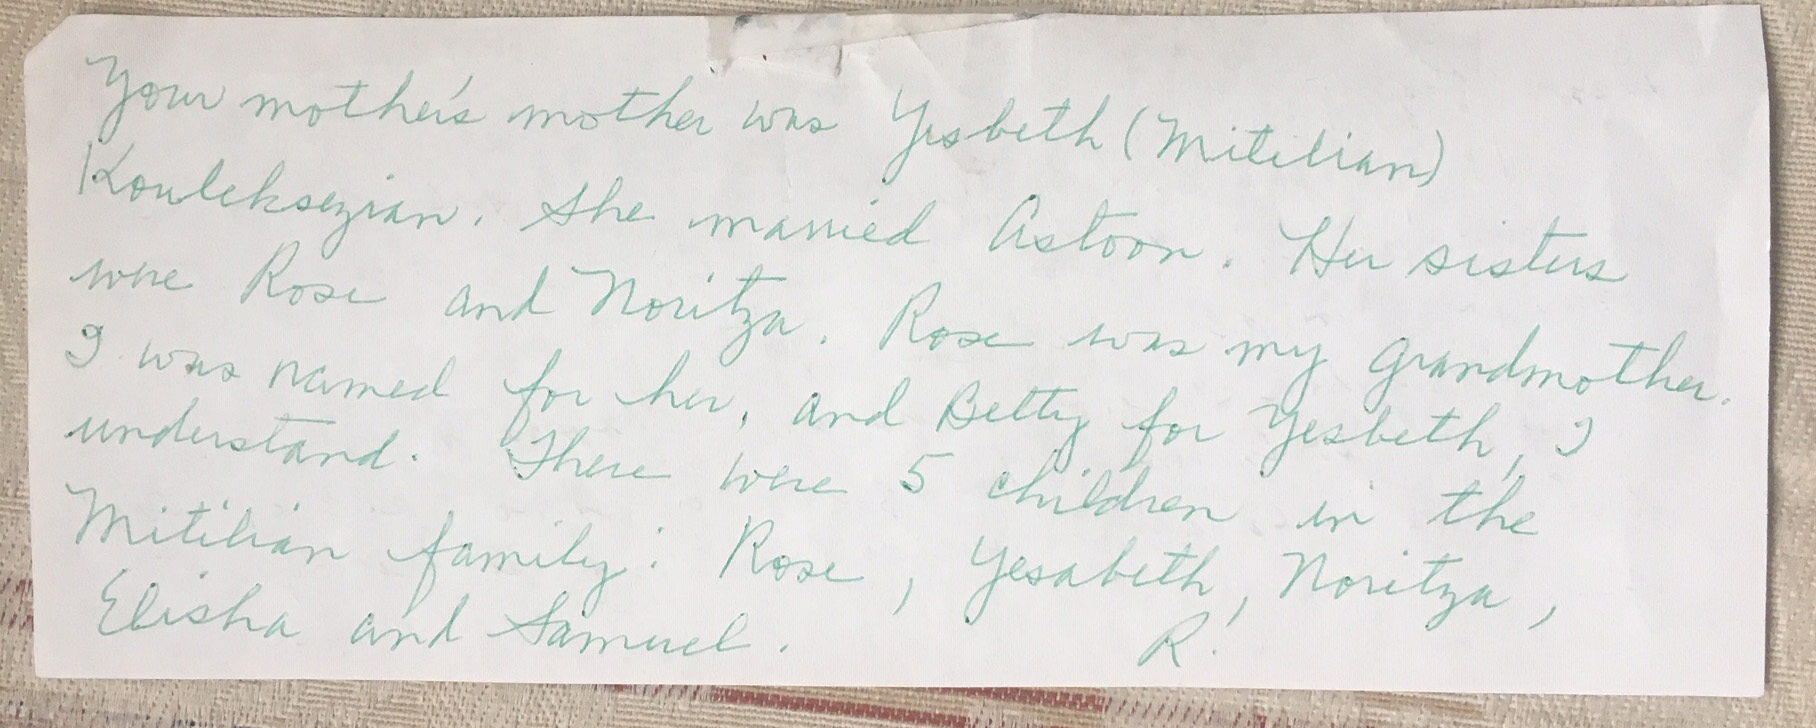 Your mother's mother was Yesbeth (Mitilian)
Kouleksezian. She married Astoor. Her sisters
were Rose and Noritza. Rose was my grandmother.
I was named for her, and Betty for Yesbeth, I
understand. There were 5 children in the
Mitilian family: Rose, Yesabeth, Noritza,
Elisha and Samuel. R.